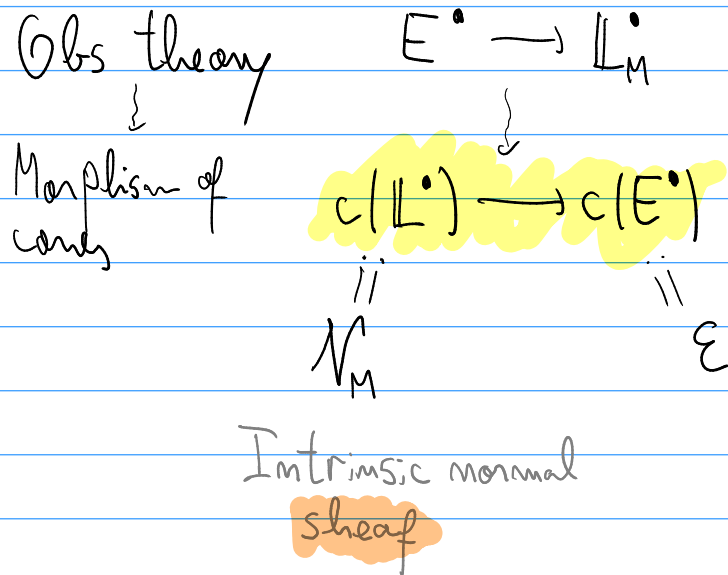 Obs theory E• → 𝕃•_M
Morphism of c(𝕃•) → c(E•)
cones
𝒩_M ℰ
Intrinsic normal
sheaf